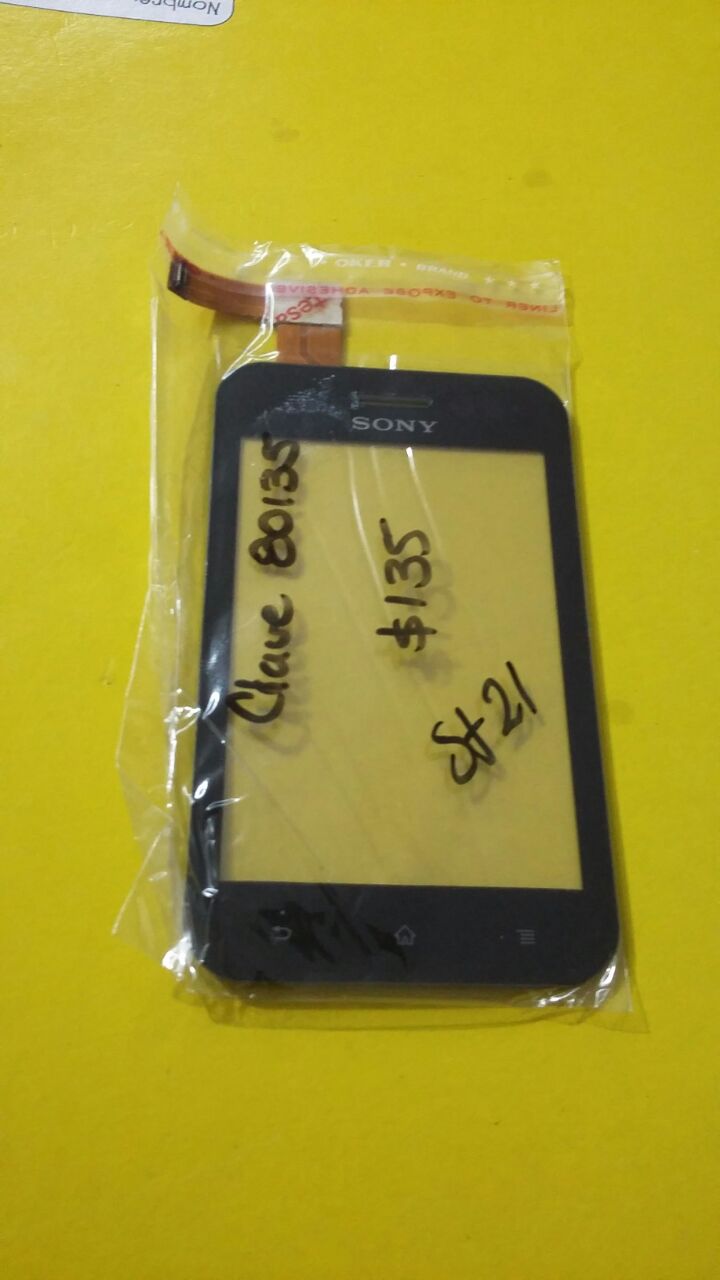 Nombre
OKER • BRAND
LINER TO EXPOSE ADHESIVE
tesa
SONY
Clave 80135
$135
St 21